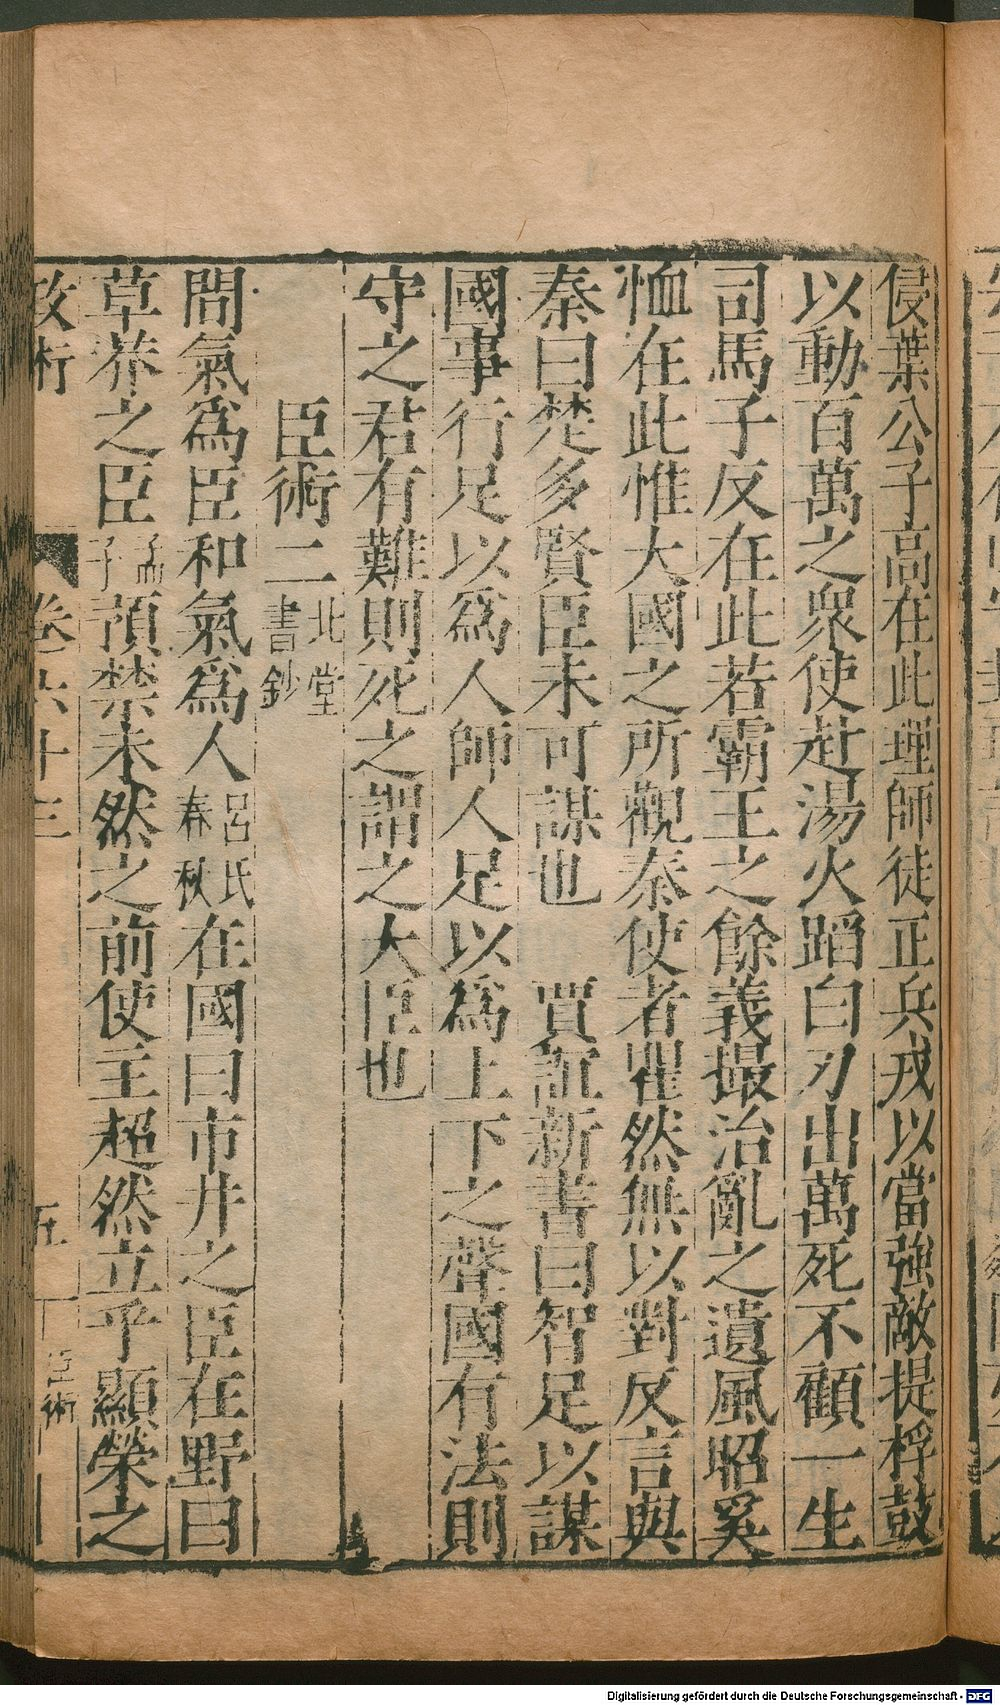 侵葉公子高在此理師徒正兵戎以當強敵提桴鼓
以動百萬之衆使赴湯火蹈白刃出萬死不顧一生
司馬子反在此若霸王之餘義撮治亂之遺風昭奚
恤在此惟大國之所觀秦使者瞿然無以對反言與
秦曰楚多賢臣未可謀也　賈誼新書曰智足以謀
國事行足以爲人師人足以爲上下之聲國有法則
守之君有難則死之謂之大臣也
臣術二北堂書鈔
問氣爲臣和氣爲人呂氏春秋在國曰市井之臣在野曰
草莽之臣孟子預禁未然之前使主超然立乎顯榮之
政術　卷六十三　五　臣術
Digitalisierung gefördert durch die Deutsche Forschungsgemeinschaft - DFG